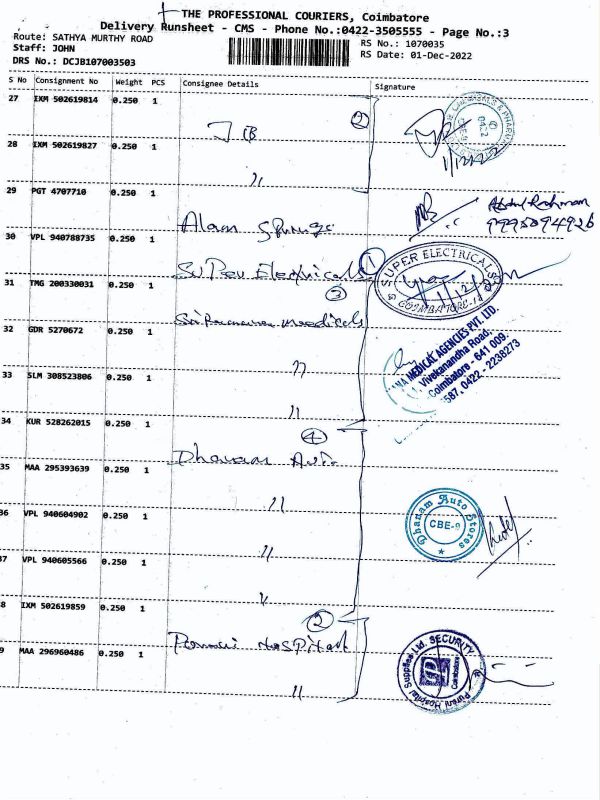 THE PROFESSIONAL COURIERS, Coimbatore
Delivery Runsheet - CMS - Phone No.:0422-3505555 - Page No.:3
Route: SATHYA MURTHY ROAD
RS No.: 1070035
Staff: JOHN
RS Date: 01-Dec-2022
DRS No.: DCJB107003503
S No Consignment No Weight PCS Consignee Details Signature
27 IXM 502619814 0.250 1
2
28 IXM 502619827 0.250 1 "
1/12/22
29 PGT 4707710 0.250 1 Alam
Abdul Rahman
30 VPL 940788735 0.250 1 Super Electricals 1
SUPER ELECTRICALS
COIMBATORE-18
31 TMG 200330031 0.250 1 medicals 3
32 GDR 5270672 0.250 1 "
MEDICAL AGENCIES PVT. LTD.
Vivekanandha Road,
Coimbatore - 641 009.
587, 0422 - 2238273
33 SLM 308523806 0.250 1 "
34 KUR 528262015 0.250 1 Dhanam Auto 4
35 MAA 295393639 0.250 1 "
36 VPL 940604902 0.250 1 "
Dhanam Auto Stores
CBE-9
37 VPL 940605566 0.250 1 "
8 IXM 502619859 0.250 1 Hospital 2
9 MAA 296960486 0.250 1 "
Hospital Supplies Ltd. SECURITY
Coimbatore